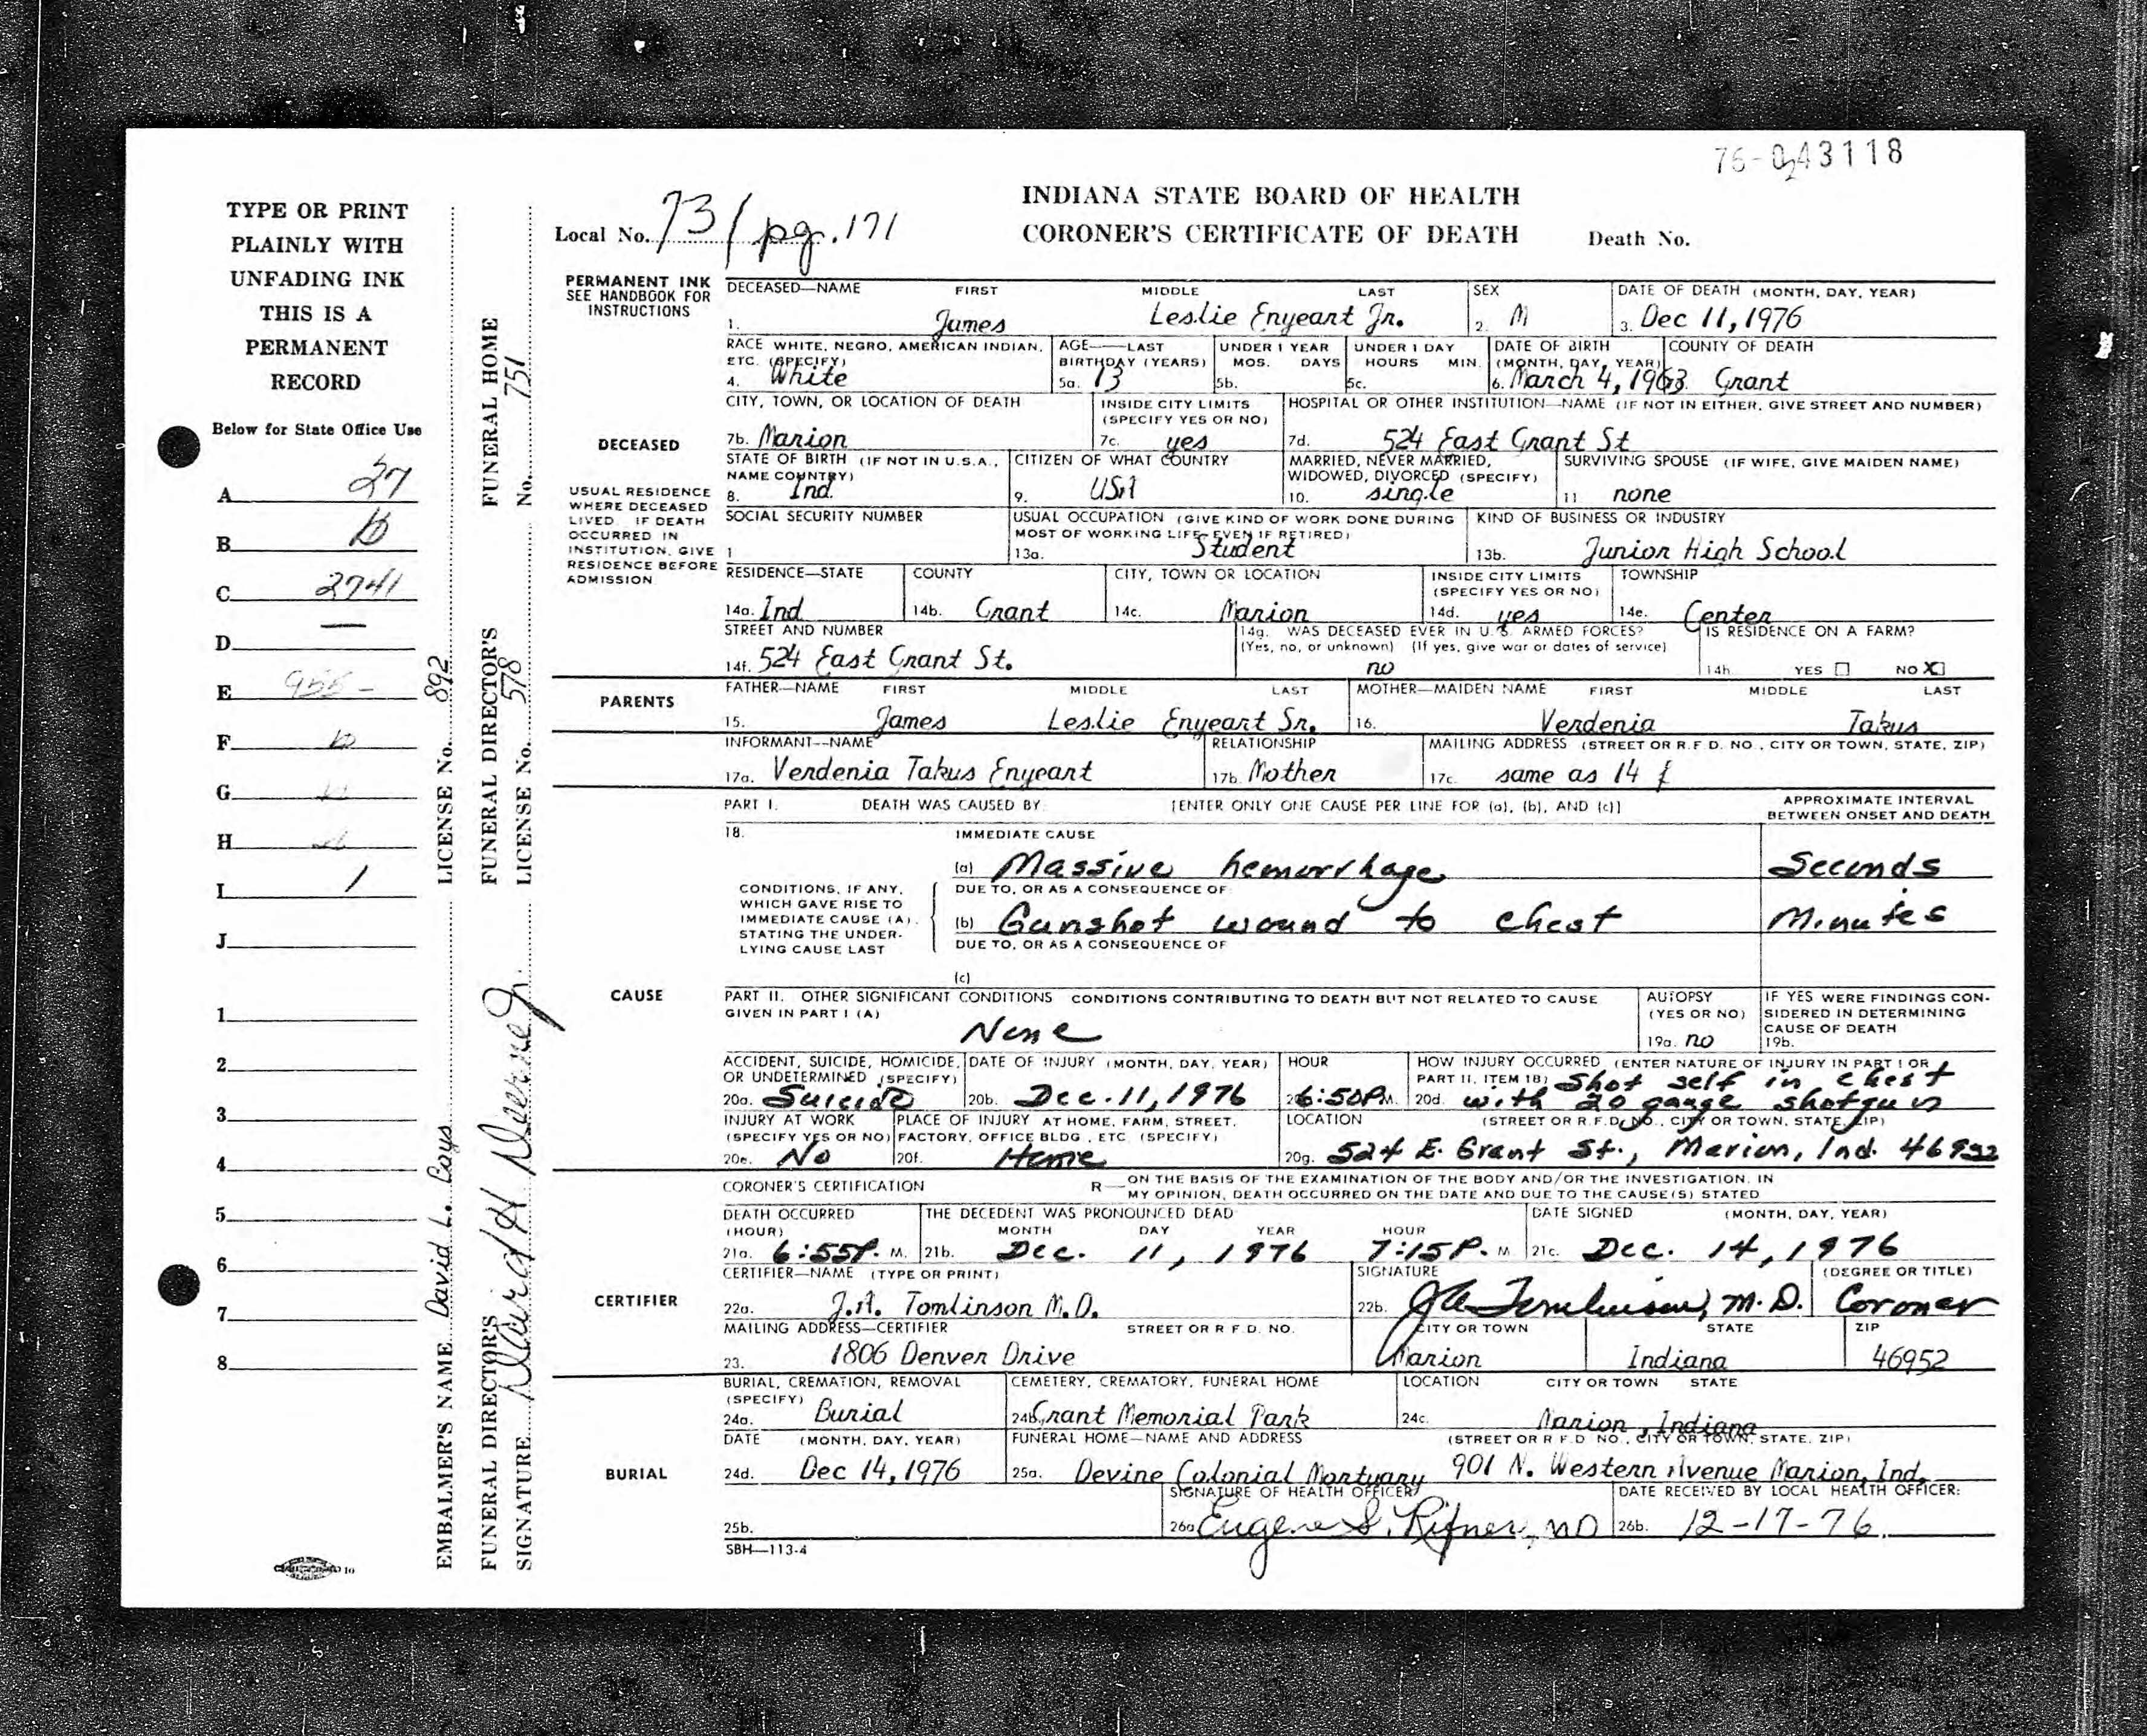 76-043118
INDIANA STATE BOARD OF HEALTH
CORONER'S CERTIFICATE OF DEATH
Local No. 73/pg. 171
Death No.
TYPE OR PRINT
PLAINLY WITH
UNFADING INK
THIS IS A
PERMANENT
RECORD
Below for State Office Use
A 27
B
C 2741
D —
E 955-
F
G
H
I 1
J
1
2
3
4
5
6
7
8
EMBALMER'S NAME David L. Cays LICENSE No. 892
FUNERAL DIRECTOR'S SIGNATURE David H
FUNERAL DIRECTOR'S LICENSE No. 578
FUNERAL HOME No. 751
PERMANENT INK
SEE HANDBOOK FOR
INSTRUCTIONS
DECEASED
USUAL RESIDENCE
WHERE DECEASED
LIVED. IF DEATH
OCCURRED IN
INSTITUTION, GIVE
RESIDENCE BEFORE
ADMISSION
DECEASED—NAME FIRST MIDDLE LAST SEX DATE OF DEATH (MONTH, DAY, YEAR)
1. James Leslie Enyeart Jr. 2. M 3. Dec 11, 1976
RACE WHITE, NEGRO, AMERICAN INDIAN, ETC. (SPECIFY) AGE—LAST BIRTHDAY (YEARS) UNDER 1 YEAR MOS. DAYS UNDER 1 DAY HOURS MIN. DATE OF BIRTH (MONTH, DAY, YEAR) COUNTY OF DEATH
4. White 5a. 13 5b. 5c. 6. March 4, 1963 Grant
CITY, TOWN, OR LOCATION OF DEATH INSIDE CITY LIMITS (SPECIFY YES OR NO) HOSPITAL OR OTHER INSTITUTION—NAME (IF NOT IN EITHER, GIVE STREET AND NUMBER)
7b. Marion 7c. yes 7d. 524 East Grant St
STATE OF BIRTH (IF NOT IN U.S.A., NAME COUNTRY) CITIZEN OF WHAT COUNTRY MARRIED, NEVER MARRIED, WIDOWED, DIVORCED (SPECIFY) SURVIVING SPOUSE (IF WIFE, GIVE MAIDEN NAME)
8. Ind. 9. USA 10. single 11 none
SOCIAL SECURITY NUMBER USUAL OCCUPATION (GIVE KIND OF WORK DONE DURING MOST OF WORKING LIFE, EVEN IF RETIRED) KIND OF BUSINESS OR INDUSTRY
1 13a. Student 13b. Junior High School
RESIDENCE—STATE COUNTY CITY, TOWN OR LOCATION INSIDE CITY LIMITS (SPECIFY YES OR NO) TOWNSHIP
14a. Ind 14b. Grant 14c. Marion 14d. yes 14e. Center
STREET AND NUMBER 14g. WAS DECEASED EVER IN U.S. ARMED FORCES? (Yes, no, or unknown) (If yes, give war or dates of service) IS RESIDENCE ON A FARM?
14f. 524 East Grant St. no 14h. YES NO X
PARENTS
FATHER—NAME FIRST MIDDLE LAST MOTHER—MAIDEN NAME FIRST MIDDLE LAST
15. James Leslie Enyeart Sr. 16. Verdenia Takus
INFORMANT—NAME RELATIONSHIP MAILING ADDRESS (STREET OR R.F.D. NO., CITY OR TOWN, STATE, ZIP)
17a. Verdenia Takus Enyeart 17b. Mother 17c. same as 14 f
CAUSE
PART I. DEATH WAS CAUSED BY: [ENTER ONLY ONE CAUSE PER LINE FOR (a), (b), AND (c)] APPROXIMATE INTERVAL BETWEEN ONSET AND DEATH
18. IMMEDIATE CAUSE
(a) Massive hemorrhage Seconds
CONDITIONS, IF ANY, WHICH GAVE RISE TO IMMEDIATE CAUSE (A), STATING THE UNDER-LYING CAUSE LAST
DUE TO, OR AS A CONSEQUENCE OF:
(b) Gunshot wound to chest Minutes
DUE TO, OR AS A CONSEQUENCE OF
(c)
PART II. OTHER SIGNIFICANT CONDITIONS CONDITIONS CONTRIBUTING TO DEATH BUT NOT RELATED TO CAUSE GIVEN IN PART I (A) AUTOPSY (YES OR NO) IF YES WERE FINDINGS CON-SIDERED IN DETERMINING CAUSE OF DEATH
None 19a. no 19b.
ACCIDENT, SUICIDE, HOMICIDE, OR UNDETERMINED (SPECIFY) DATE OF INJURY (MONTH, DAY, YEAR) HOUR HOW INJURY OCCURRED (ENTER NATURE OF INJURY IN PART I OR PART II, ITEM 18)
20a. Suicide 20b. Dec. 11, 1976 6:50P M. 20d. Shot self in chest with 20 gauge shotgun
INJURY AT WORK (SPECIFY YES OR NO) PLACE OF INJURY AT HOME, FARM, STREET, FACTORY, OFFICE BLDG., ETC. (SPECIFY) LOCATION (STREET OR R.F.D. NO., CITY OR TOWN, STATE, ZIP)
20e. No 20f. Home 20g. 524 E. Grant St., Marion, Ind. 46952
CERTIFIER
CORONER'S CERTIFICATION R— ON THE BASIS OF THE EXAMINATION OF THE BODY AND/OR THE INVESTIGATION, IN MY OPINION, DEATH OCCURRED ON THE DATE AND DUE TO THE CAUSE(S) STATED
DEATH OCCURRED (HOUR) THE DECEDENT WAS PRONOUNCED DEAD MONTH DAY YEAR HOUR DATE SIGNED (MONTH, DAY, YEAR)
21a. 6:55P. M. 21b. Dec. 11, 1976 7:15P. M 21c. Dec. 14, 1976
CERTIFIER—NAME (TYPE OR PRINT) SIGNATURE (DEGREE OR TITLE)
22a. J.A. Tomlinson M.D. 22b. JA Tomlinson, M.D. Coroner
MAILING ADDRESS—CERTIFIER STREET OR R.F.D. NO. CITY OR TOWN STATE ZIP
23. 1806 Denver Drive Marion Indiana 46952
BURIAL
BURIAL, CREMATION, REMOVAL (SPECIFY) CEMETERY, CREMATORY, FUNERAL HOME LOCATION CITY OR TOWN STATE
24a. Burial 24b. Grant Memorial Park 24c. Marion, Indiana
DATE (MONTH, DAY, YEAR) FUNERAL HOME—NAME AND ADDRESS (STREET OR R.F.D. NO., CITY OR TOWN, STATE, ZIP)
24d. Dec 14, 1976 25a. Devine Colonial Mortuary 901 N. Western Avenue Marion, Ind.
SIGNATURE OF HEALTH OFFICER DATE RECEIVED BY LOCAL HEALTH OFFICER:
25b. 26a Eugene S. Rifner, MD 26b. 12-17-76
SBH—113-4